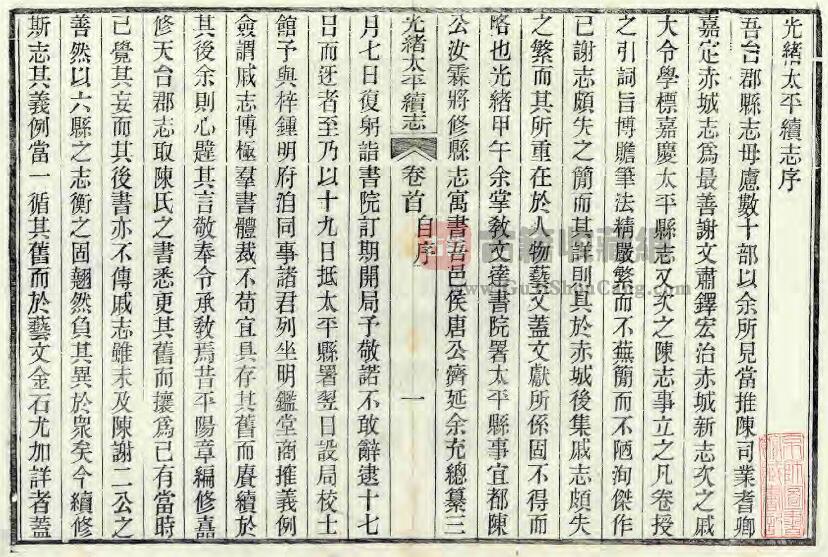 光緒太平續志序
吾台郡縣志毋慮數十部以余所見當推陳司業耆卿
嘉定赤城志爲最善謝文肅鐸宏治赤城新志次之戚
大令學標嘉慶太平縣志又次之陳志事立之凡卷授
之引詞旨博贍筆法精嚴繁而不蕪簡而不陋洵傑作
已謝志頗失之簡而其詳則具於赤城後集戚志頗失
之繁而其所重在於人物藝文蓋文獻所係固不得而
略也光緒甲午余掌教文達書院署太平縣事宜都陳
公汝霖將修縣志寓書吾邑侯唐公濟延余充總纂三
光緒太平續志
卷首
自序
一
月七日復躬詣書院訂期開局予敬諾不敢辭逮十七
日而迓者至乃以十九日抵太平縣署翌日設局校士
館予與梓鍾明府洎同事諸君列坐明鑑堂商推義例
僉謂戚志博極羣書體裁不苟宜具存其舊而賡續於
其後余則心韙其言敬奉令承教焉昔平陽章編修嘉
修天台郡志取陳氏之書悉更其舊而攘爲己有當時
已覺其妄而其後書亦不傳戚志雖未及陳謝二公之
善然以六縣之志衡之固翹然負其異於衆矣今續修
斯志其義例當一循其舊而於藝文金石尤加詳者蓋
古籍收藏網
www.GuJiShouCang.com